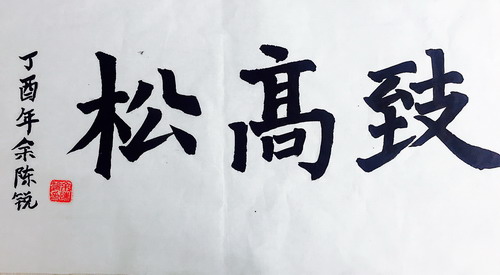 致高松
丁酉年余陈锐